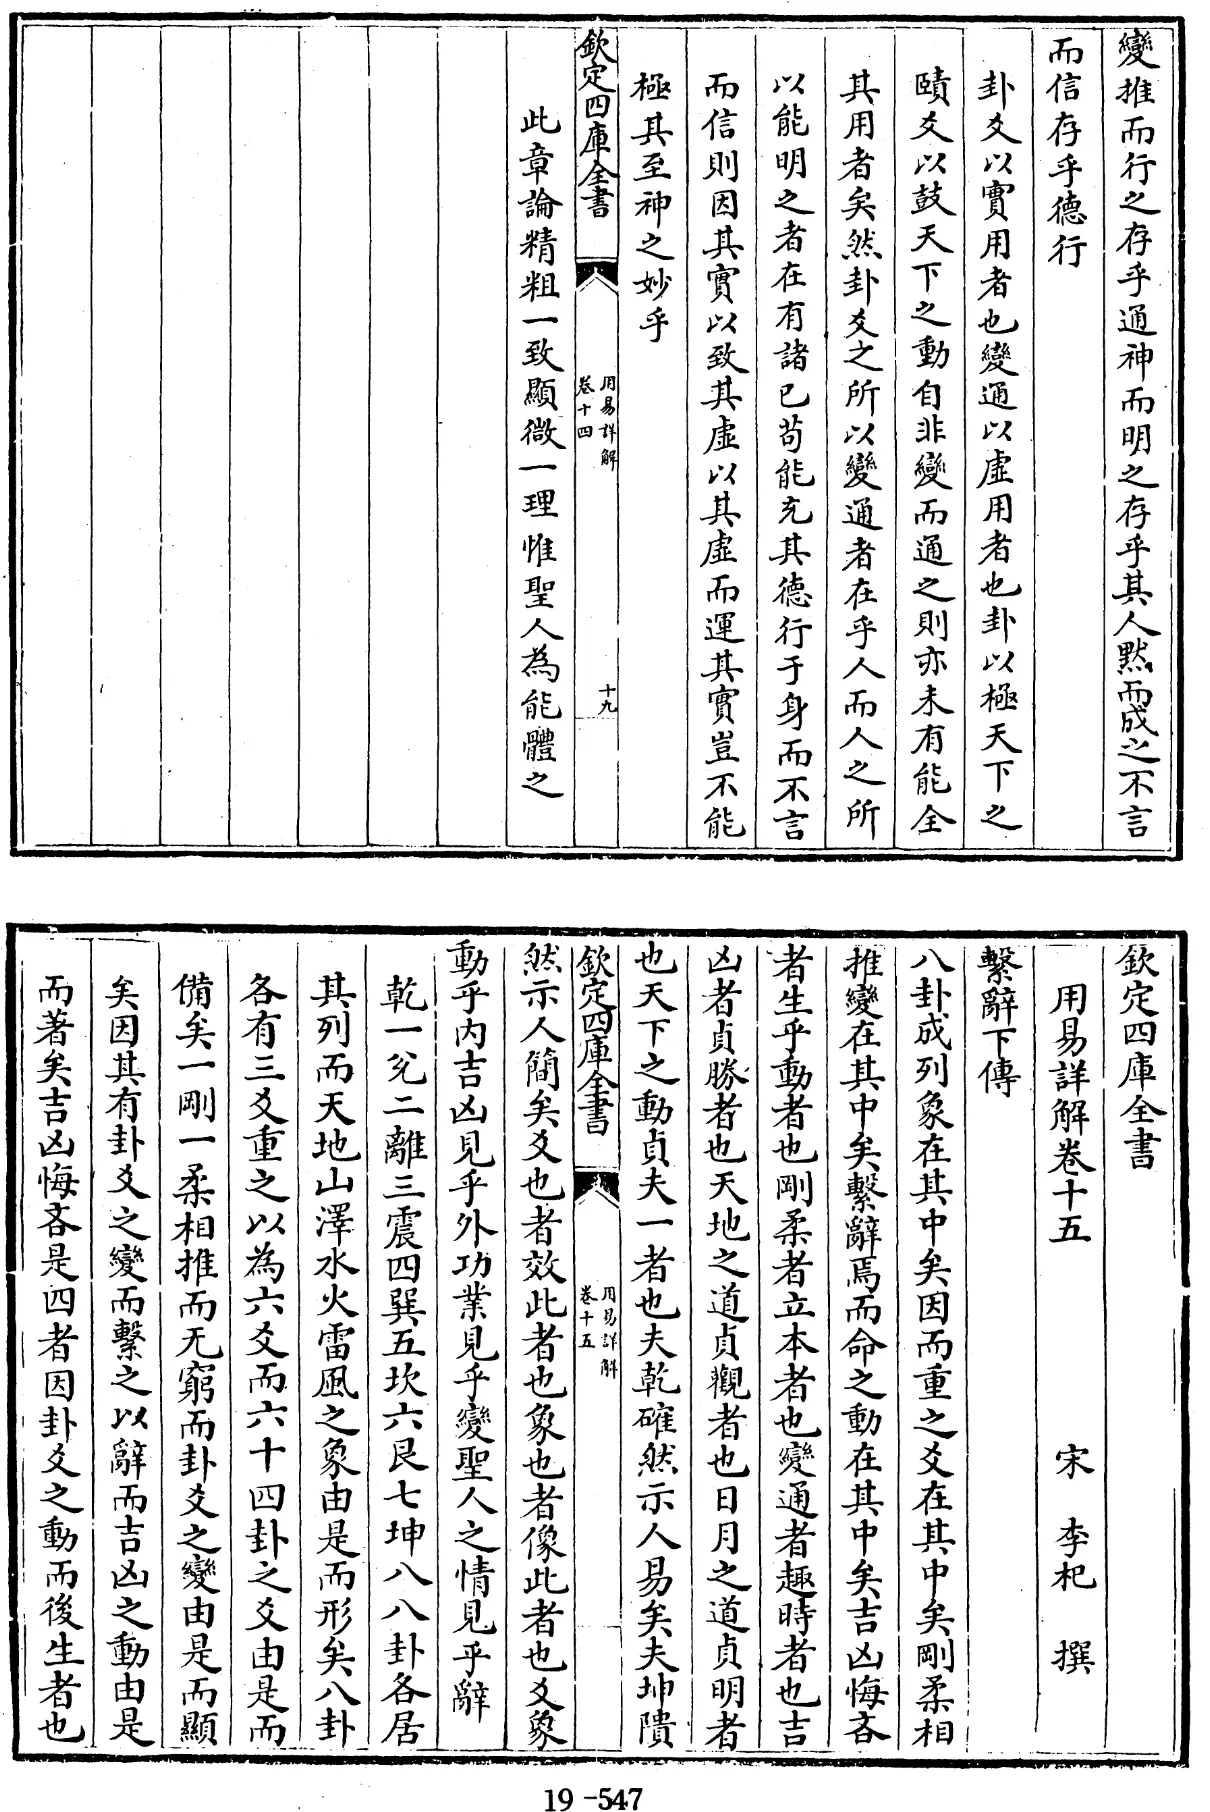 變推而行之存乎通神而明之存乎其人黙而成之不言
而信存乎德行
卦爻以實用者也變通以虛用者也卦以極天下之
賾爻以鼓天下之動自非變而通之則亦未有能全
其用者矣然卦爻之所以變通者在乎人而人之所
以能明之者在有諸已茍能充其德行于身而不言
而信則因其實以致其虛以其虛而運其實豈不能
極其至神之妙乎
欽定四庫全書
用易詳解
卷十四
十九
此章論精粗一致顯微一理惟聖人為能體之
欽定四庫全書
用易詳解卷十五 宋 李杞 撰
繫辭下傳
八卦成列象在其中矣因而重之爻在其中矣剛柔相
推變在其中矣繫辭焉而命之動在其中矣吉凶悔吝
者生乎動者也剛柔者立本者也變通者趣時者也吉
凶者貞勝者也天地之道貞觀者也日月之道貞明者
也天下之動貞夫一者也夫乾確然示人易矣夫坤隤
欽定四庫全書
用易詳解
卷十五
然示人簡矣爻也者效此者也象也者像此者也爻象
動乎内吉凶見乎外功業見乎變聖人之情見乎辭
乾一兊二離三震四巽五坎六艮七坤八八卦各居
其列而天地山澤水火雷風之象由是而形矣八卦
各有三爻重之以為六爻而六十四卦之爻由是而
備矣一剛一柔相推而无窮而卦爻之變由是而顯
矣因其有卦爻之變而繫之以辭而吉凶之動由是
而著矣吉凶悔吝是四者因卦爻之動而後生者也
19-547